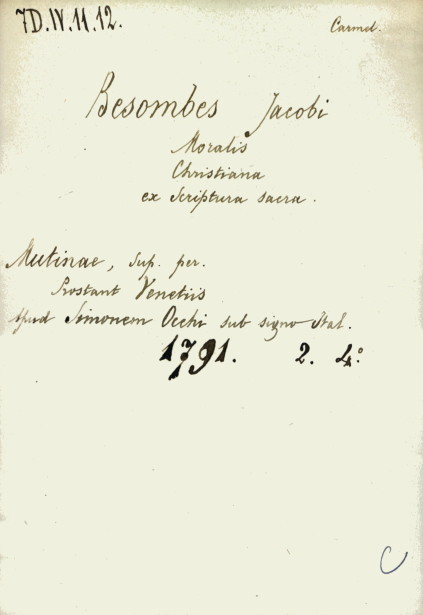 7D.IV.11.12.
Carmel.
Besombes Jacobi
Moralis
Christiana
ex Scriptura sacra.
Mutinae, Sup. per.
Prostant Venetiis
apud Simonem Occhi sub signo Ital.
1791. 2. 4.°
C